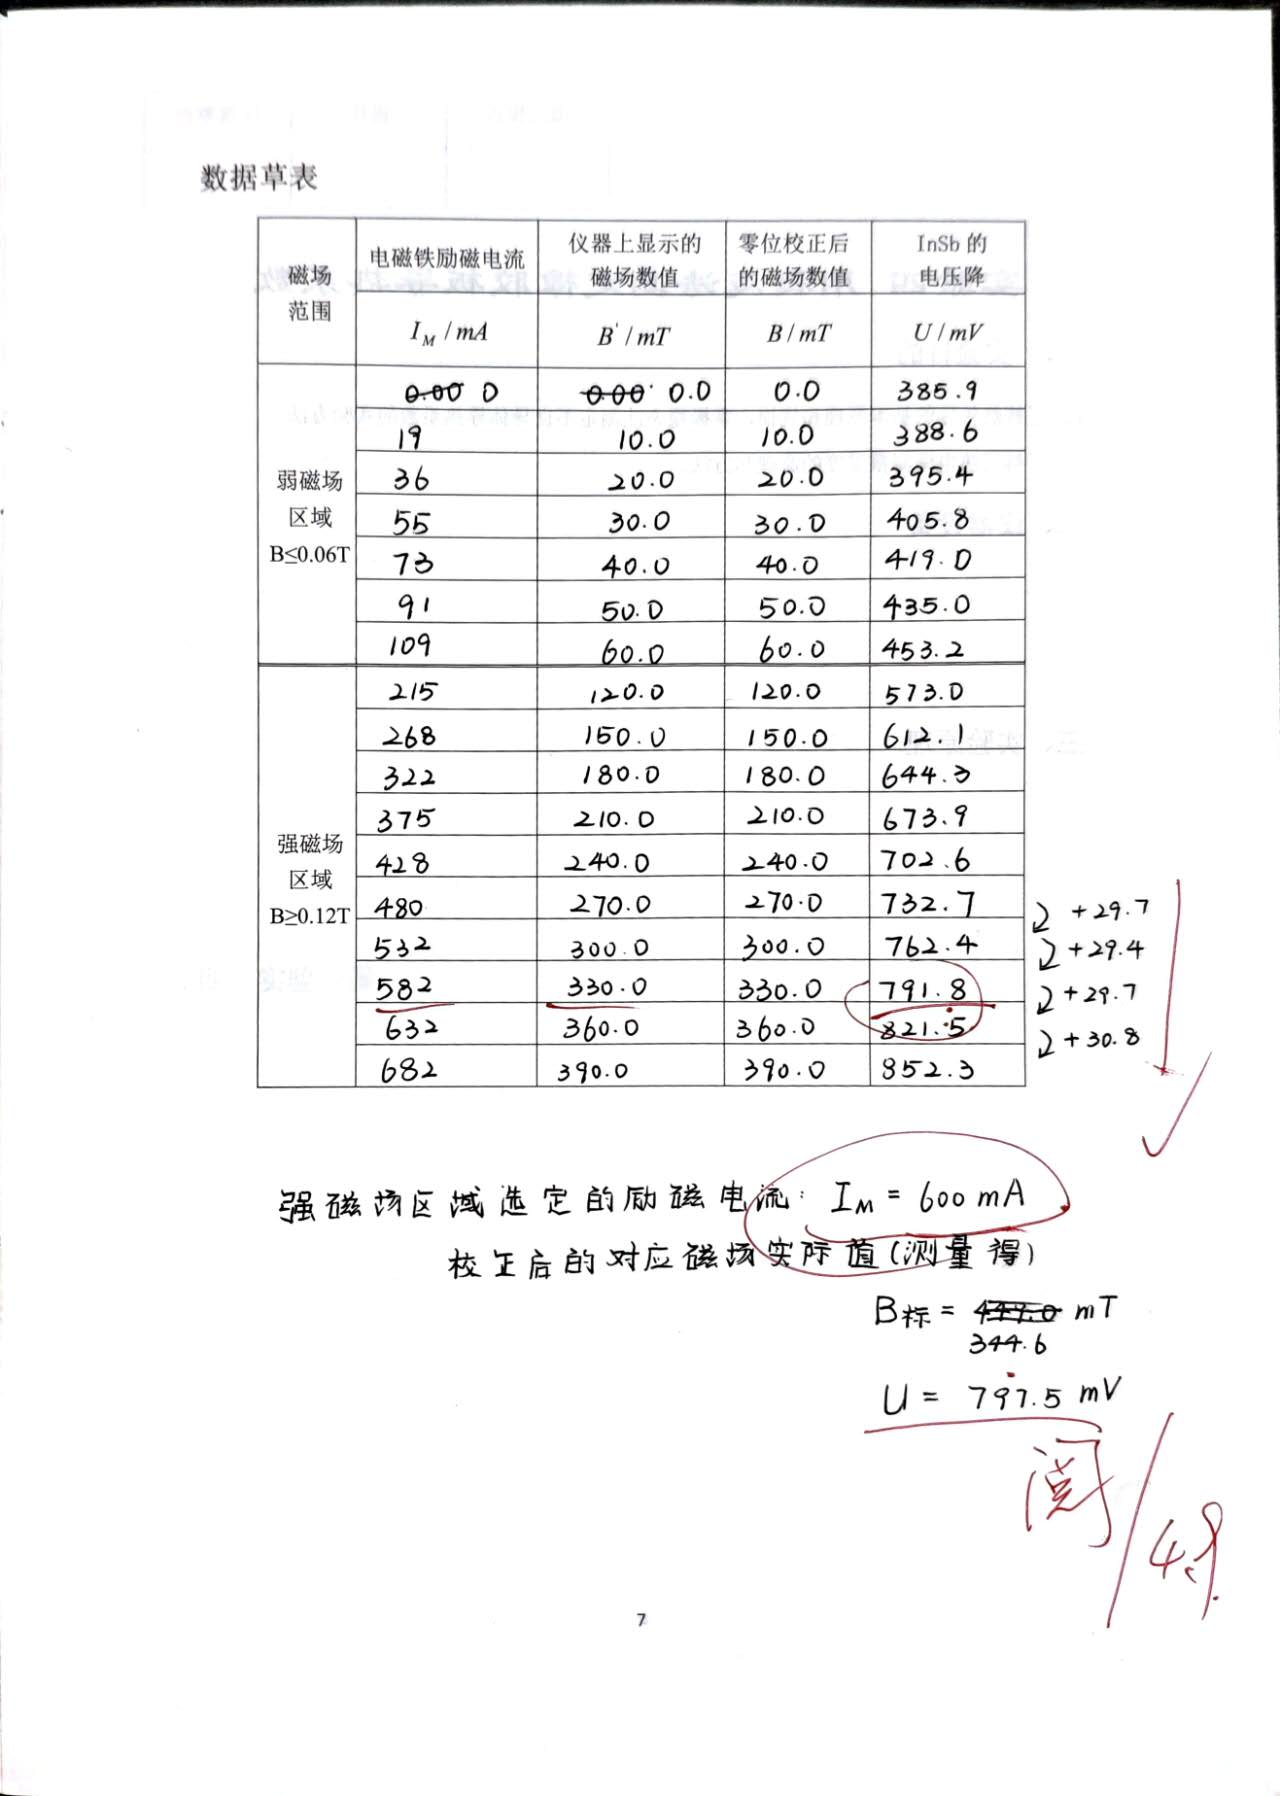 数据草表
磁场范围 电磁铁励磁电流 仪器上显示的磁场数值 零位校正后的磁场数值 InSb 的电压降
I_M / mA B' / mT B / mT U / mV
弱磁场区域 B≤0.06T
0.00 0 0.00 0.0 0.0 385.9
19 10.0 10.0 388.6
36 20.0 20.0 395.4
55 30.0 30.0 405.8
73 40.0 40.0 419.0
91 50.0 50.0 435.0
109 60.0 60.0 453.2
强磁场区域 B≥0.12T
215 120.0 120.0 573.0
268 150.0 150.0 612.1
322 180.0 180.0 644.3
375 210.0 210.0 673.9
428 240.0 240.0 702.6
480 270.0 270.0 732.7
+29.7
532 300.0 300.0 762.4
+29.4
582 330.0 330.0 791.8
+29.7
632 360.0 360.0 821.5
+30.8
682 390.0 390.0 852.3
强磁场区域选定的励磁电流: I_M = 600 mA
校正后的对应磁场实际值(测量得)
B标 = mT
344.6
U = 797.5 mV
阅
7